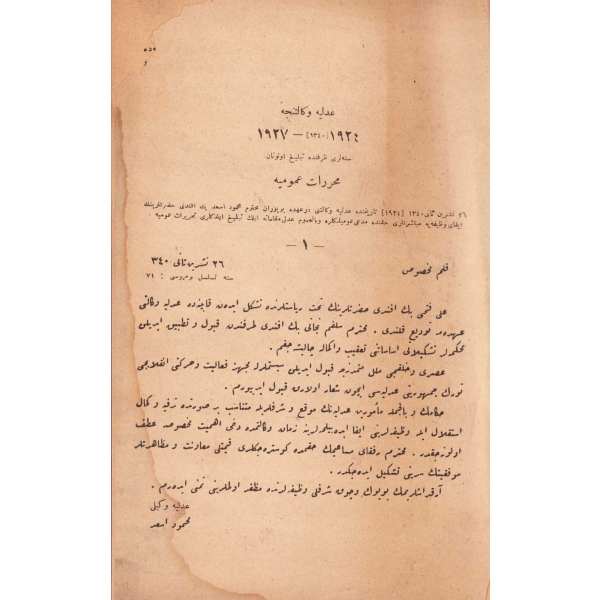 عدلیه وكالتنجه
١٩٢٤ [١٣٤٠] — ١٩٢٧
سنه‌لری ظرفنده تبلیغ اولونان
محررات عمومیه
٢٦ تشرین ثانی ١٣٤٠ [١٩٢٤] تاریخنده عدلیه وكالتنی درعهده بویوران محترم محمود اسعد بك افندی حضرتلرینك
ایفای وظیفه‌یه مباشرتلری حقنده مدعی عمومیلكلره وبالعموم عدلی مقاماته ایلك تبلیغ ایتدكلری تحریرات عمومیه
— ١ —
قلم مخصوص
٢٦ تشرین ثانی ٣٤٠
سنه تسلسل نومروسی : ٧١
علی فتحی بك افندی حضرتلرینك تحت ریاستلرنده تشكل ایدن قابینه‌ده عدلیه وكالتی
عهده‌مه تودیع قلندی . محترم سلفم نجاتی بك افندی طرفندن قبول و تطبیق ایدیلن
محكمه‌لر تشكیلاتی اساساتنی تعقیب واكماله چالیشه‌جغم .
عصری وخلقجی ملل متمدنه‌جه قبول ایدیلن سیستملرله مجهز فعالیت وحركتی انقلابجی
تورك جمهوریتی عدلیه‌سی ایچون شعار اولارق قبول ایدییورم .
حكامك و بالجمله مأمورین عدلیه‌نك موقع و شرفلریله متناسب بر صورتده ترفیه و كمال
استقلال ایله وظیفه‌لرینی ایفا ایده‌بیلمه‌لرینه زمان وكالتمده دخی اهمیت مخصوصه عطف
اولونه‌جقدر . محترم رفقای مساعیمك حقمده كوستره‌جكلری قیمتلی معاونت و مظاهرتلر
موفقیتك سرینی تشكیل ایده‌جكدر .
آرقداشلریمك بویوك وچوق شرفلی وظیفه‌لرنده مظفر اولمه‌لرینی تمنی ایده‌رم .
عدلیه وكیلی
محمود اسعد